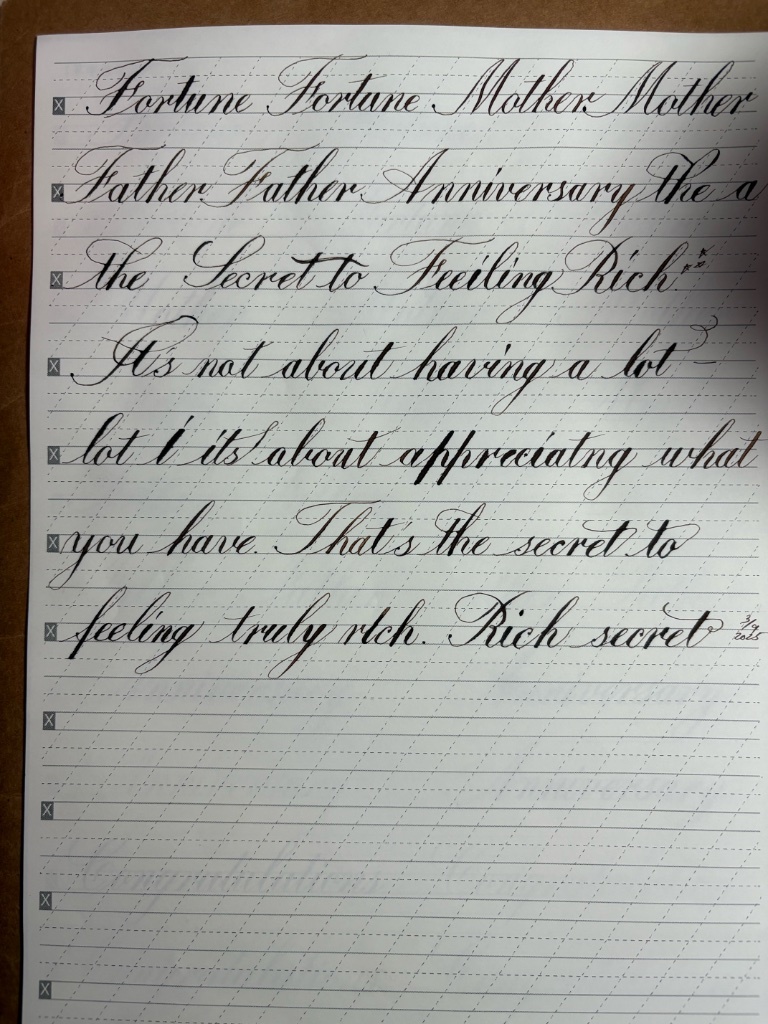 Fortune Fortune Mother Mother
Father Father Anniversary the a
the Secret to Feeiling Rich
It's not about having a lot -
lot i its about appreciatng what
you have. That's the secret to
feeling truly rich. Rich secret 3/9 2025
Anniversary
Anniversary
Congratulations